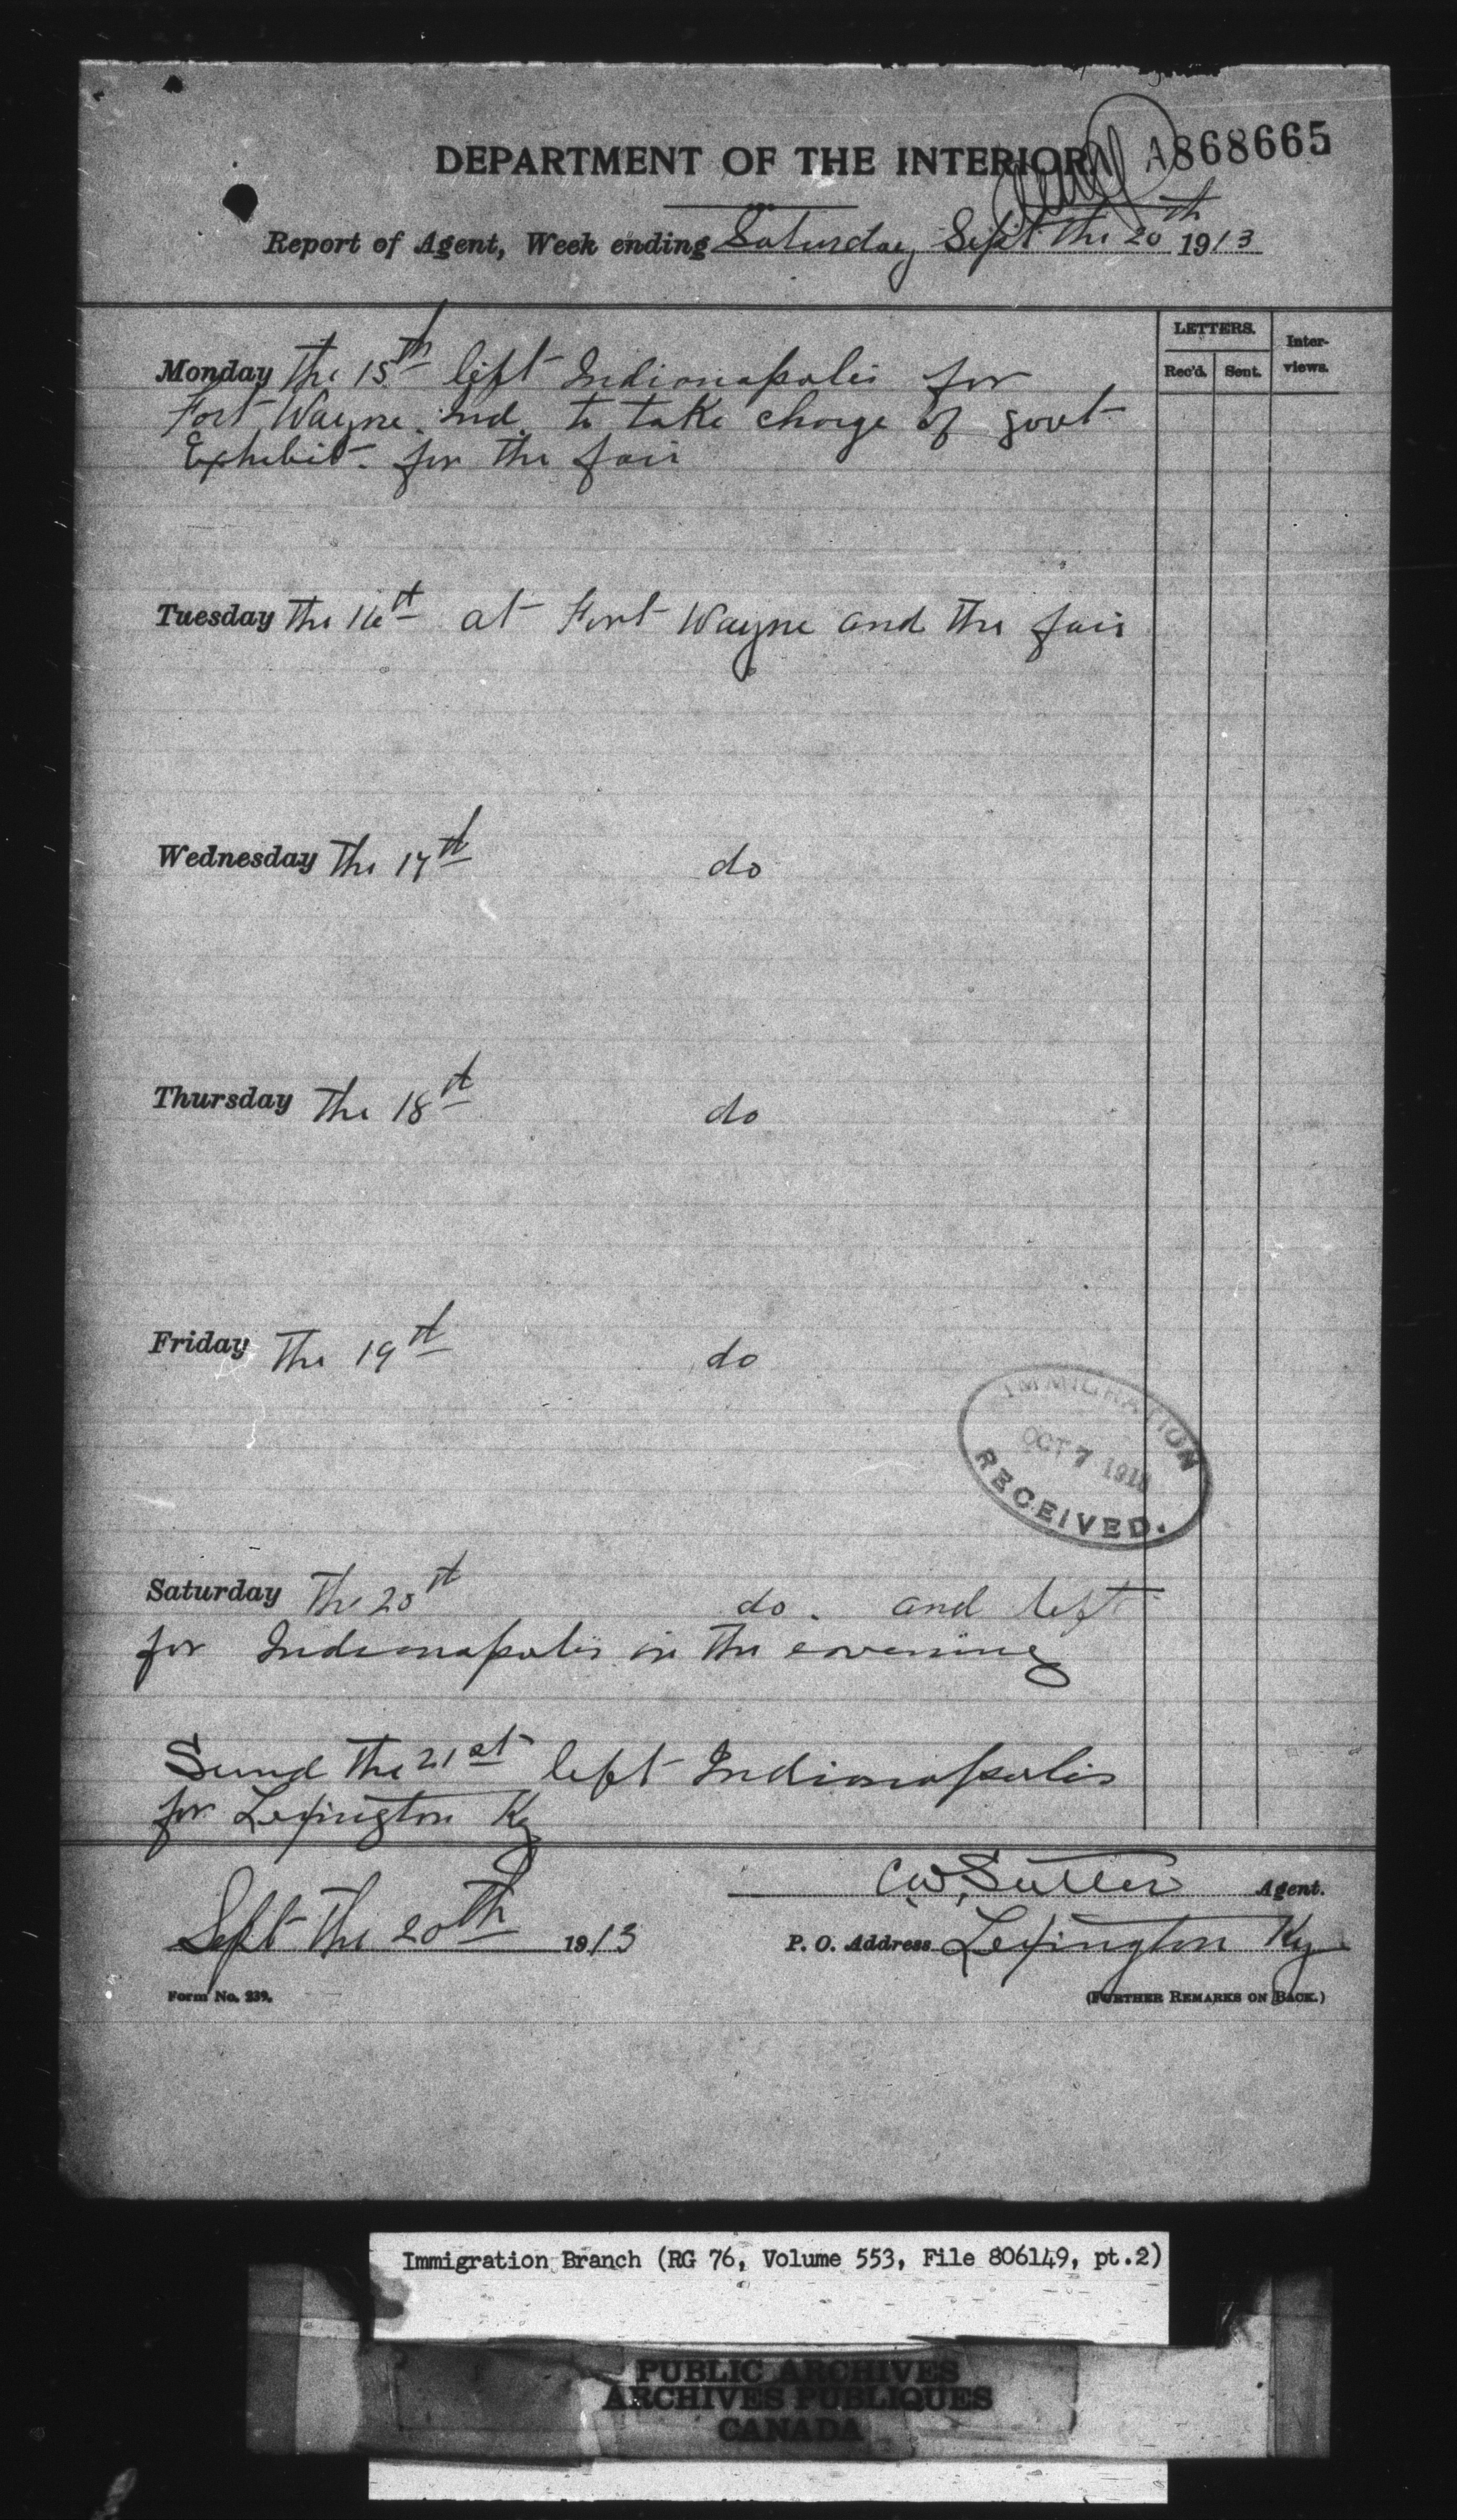 A868665
DEPARTMENT OF THE INTERIOR
Report of Agent, Week ending Saturday Sept the 20th 1913
LETTERS.
Inter-views.
Rec'd. Sent.
Monday the 15th left Indianapolis for
Fort Wayne. Ind. to take charge of govt
Exhibit. for the fair
Tuesday the 16th at Fort Wayne and the fair
Wednesday the 17th do
Thursday the 18th do
Friday the 19th do
IMMIGRATION
OCT 7 1913
RECEIVED.
Saturday the 20th do. and left
for Indianapolis in the evening
Sund the 21st left Indianapolis
for Lexington Ky
C.W. Sutter Agent.
Sept the 20th 1913
P. O. Address Lexington Ky
Form No. 239.
(FURTHER REMARKS ON BACK.)
Immigration Branch (RG 76, Volume 553, File 806149, pt.2)
PUBLIC ARCHIVES
ARCHIVES PUBLIQUES
CANADA